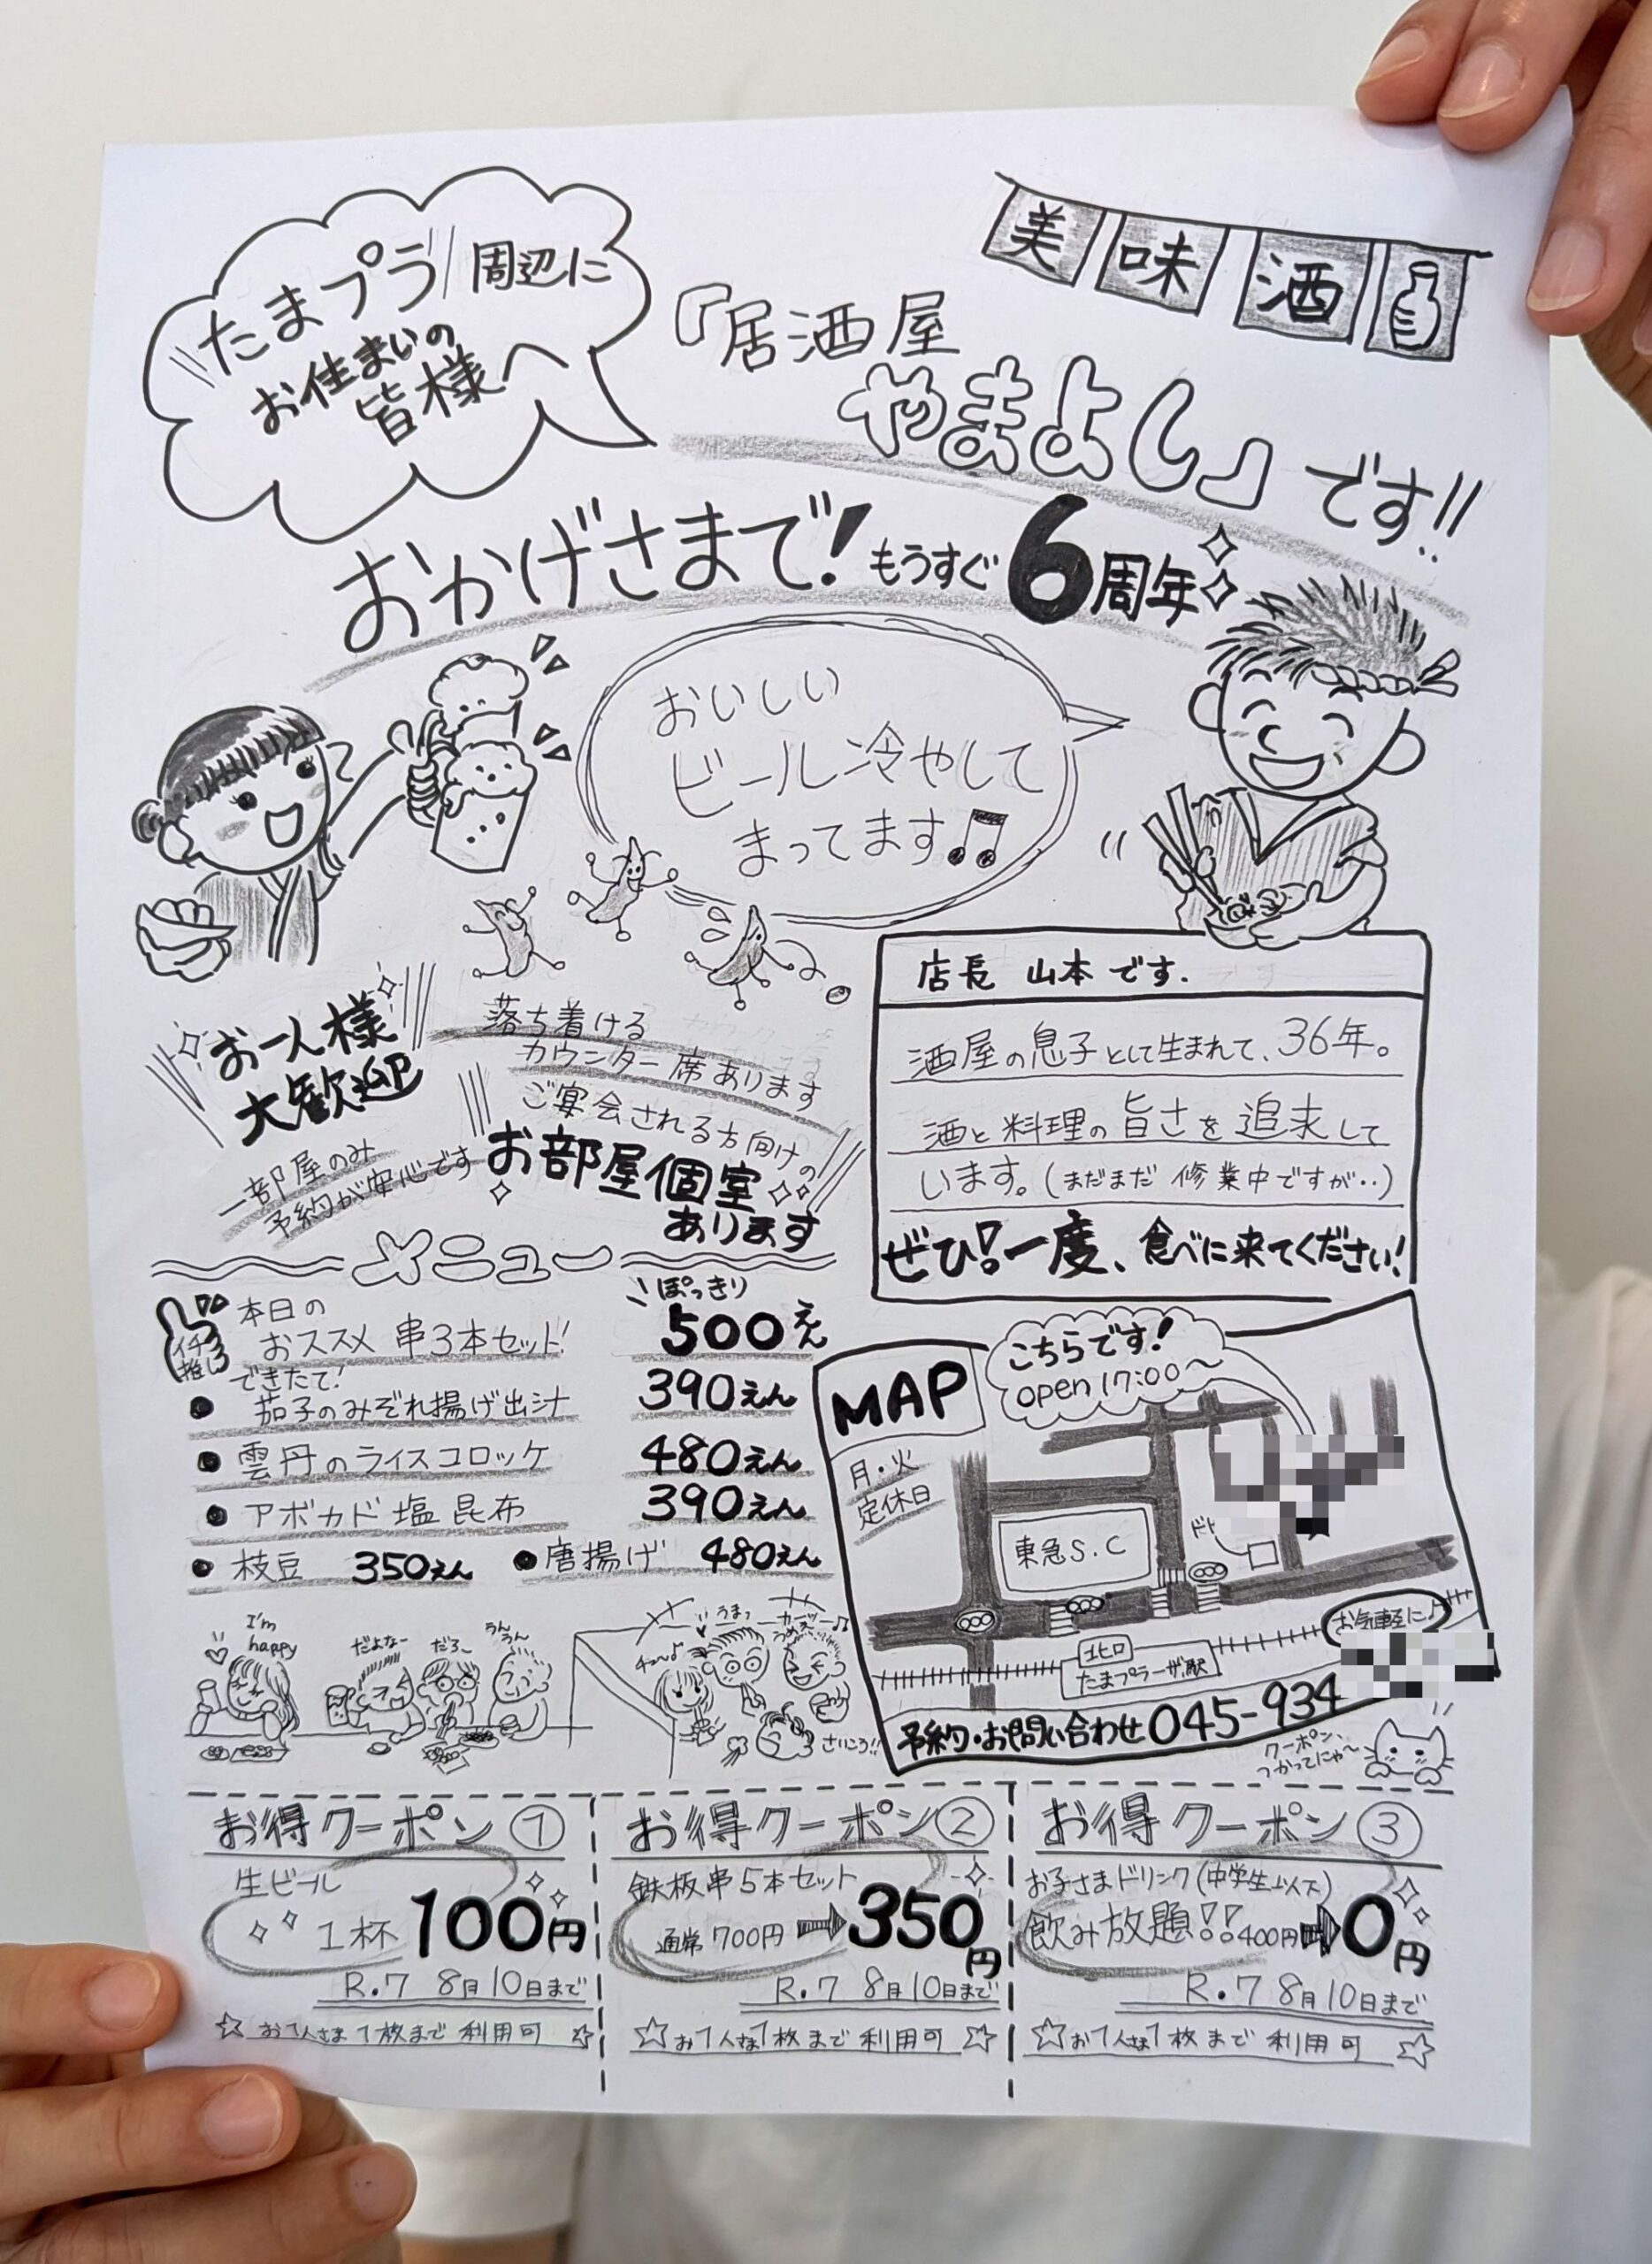 たまプラ周辺に
お住まいの
皆様へ
美味酒
『居酒屋
やまよし』です!!
おかげさまで!もうすぐ6周年
おいしい
ビール冷やして
まってます♫
お一人様
大歓迎
落ち着ける
カウンター席あります
ご宴会される方向けの
お部屋個室
あります
一部屋のみ
予約が安心です
店長 山本です.
酒屋の息子として生まれて、36年。
酒と料理の旨さを追求して
います。(まだまだ修業中ですが‥)
ぜひ!一度、食べに来てください!
メニュー
イチ推し
本日の
おススメ 串3本セット! ぽっきり 500えん
できたて!
●茄子のみぞれ揚げ出汁 390えん
●雲丹のライスコロッケ 480えん
●アボカド塩昆布 390えん
●枝豆 350えん ●唐揚げ 480えん
MAP
こちらです!
open 17:00〜
月・火
定休日
東急S.C
北口
たまプラーザ駅
お気軽に♪
予約・お問い合わせ 045-934
I'm
happy
だよなー
だろ〜
うんうん
うまっ
さいこう!!
クーポン、
つかってにゃ〜
お得クーポン①
生ビール
1杯 100円
R.7 8月10日まで
☆お1人さま1枚まで利用可☆
お得クーポン②
鉄板串5本セット
通常700円➡350円
R.7 8月10日まで
☆お1人さま1枚まで利用可☆
お得クーポン③
お子さまドリンク(中学生以下)
飲み放題!!400円➡0円
R.7 8月10日まで
☆お1人さま1枚まで利用可☆